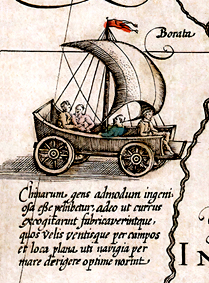 Borata
Chinarum gens admodum ingeni-
osa esse perhibetur, adeo ut currus
excogitarint fabricaverintque,
quos velis ventisque per campos
et loca plana, uti navigia per
mare derigere optime norint.
IN